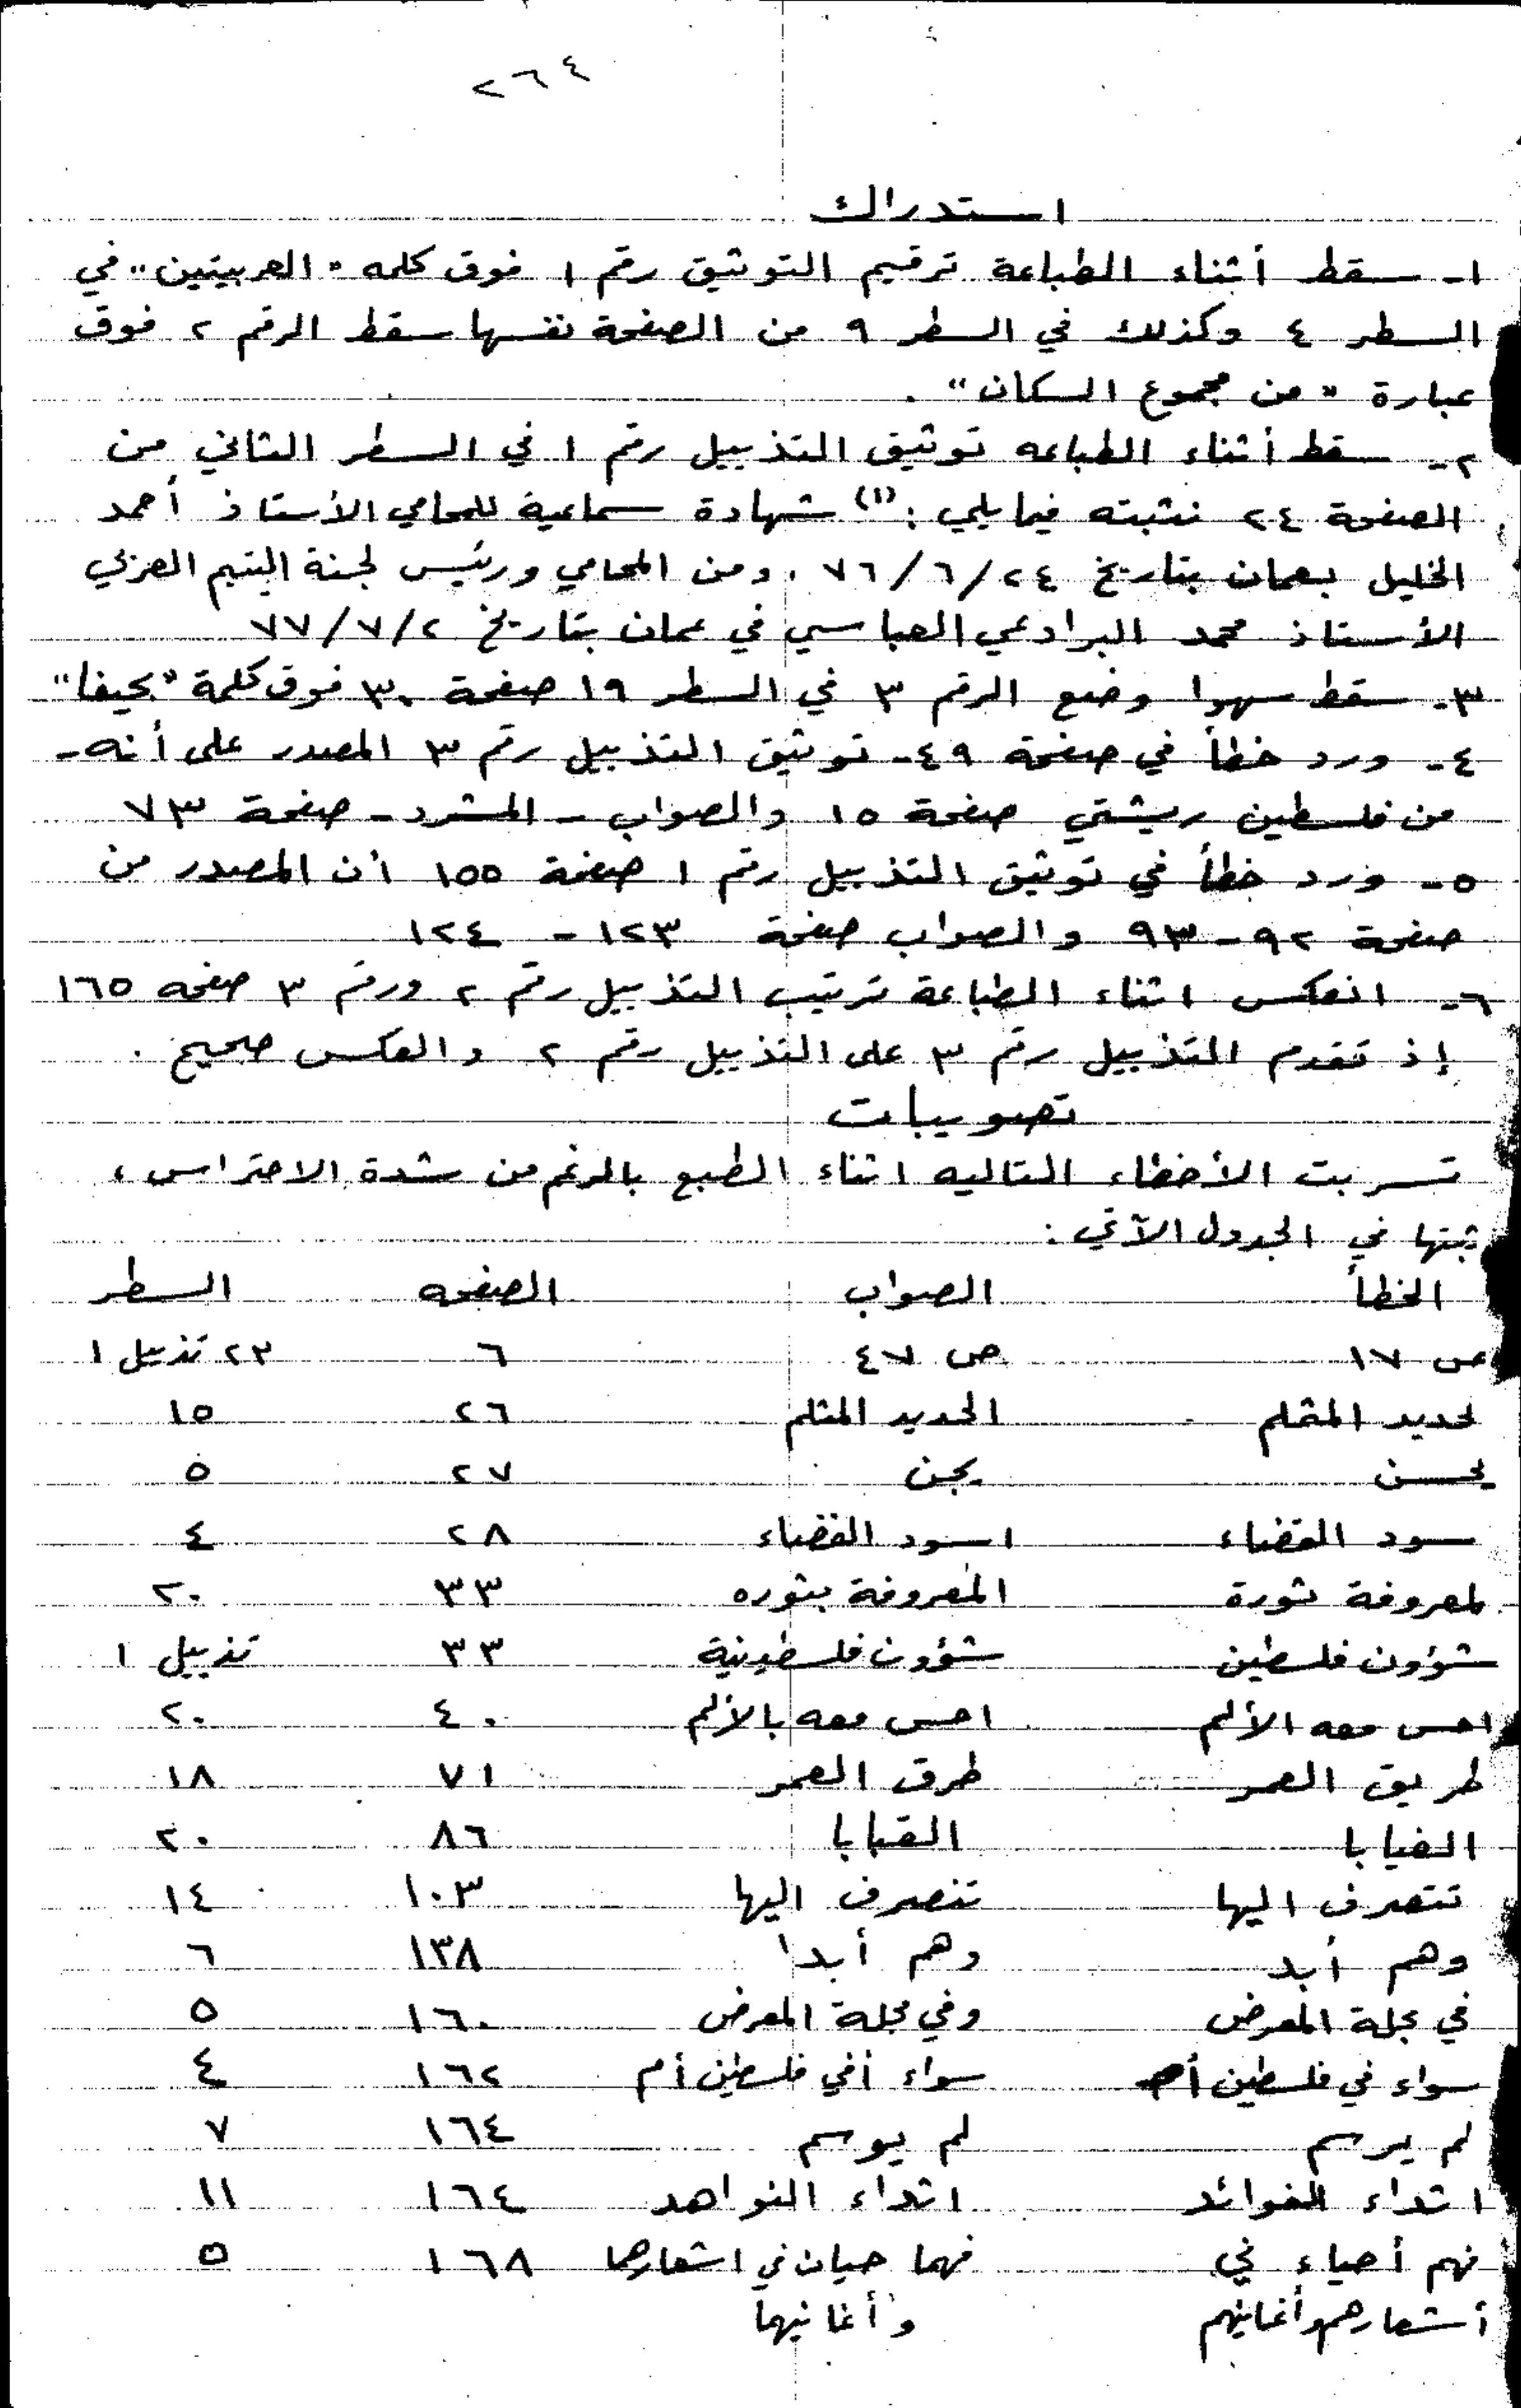 ٢٦٤
استدراك
١- سقط أثناء الطباعة ترقيم التوثيق رقم ١ فوق كلمه "العربيتين" في
السطر ٤ وكذلك في السطر ٩ من الصفحة نفسها سقط الرقم ٢ فوق
عبارة "من مجموع السكان".
٢- سقط أثناء الطباعه توثيق التذييل رقم ١ في السطر الثاني من
الصفحة ٢٤ نثبته فيما يلي: (١) شهادة سماعية للمحامي الأستاذ أحمد
الخليل بعمان بتاريخ ٢٤/٦/٧٦، ومن المحامي ورئيس لجنة اليتيم العربي
الأستاذ محمد البرادعي العباسي في عمان بتاريخ ٢/٧/٧٧
٣- سقط سهوا وضع الرقم ٣ في السطر ١٩ صفحة ٣٠ فوق كلمة "بحيفا"
٤- ورد خطأ في صفحة ٤٩- توثيق التذييل رقم ٣ المصدر على أنه-
من فلسطين ريشتي صفحة ١٥ والصواب - المشرد - صفحة ٧٣
٥- ورد خطأ في توثيق التذييل رقم ١ صفحة ١٥٥ أن المصدر من
صفحة ٩٢-٩٣ والصواب صفحة ١٢٣ - ١٢٤
٦- انعكس اثناء الطباعة ترتيب التذييل رقم ٢ ورقم ٣ صفحه ١٦٥
إذ تقدم التذييل رقم ٣ على التذييل رقم ٢ والعكس صحيح.
تصويبات
تسربت الأخطاء التاليه اثناء الطبع بالرغم من شدة الاحتراس،
نثبتها في الجدول الآتي:
الخطأ الصواب الصفحه السطر
ص ١٧ ص ٤٧ ٦ ٢٣ تذييل ١
لحديد المثلم الحديد المثلم ٢٦ ١٥
يحسن يجن ٢٧ ٥
سود القضاء اسود الفضاء ٢٨ ٤
لمعروفة ثورة المعروفة بثوره ٣٣ ٢٠
شؤون فلسطين شؤون فلسطينية ٣٣ تذييل ١
احس معه الألم احس معه بالألم ٤٠ ٢٠
طريق العمر طرق العمر ٧١ ١٨
الغيابا القبابا ٨٦ ٢٠
تتصرف اليها تنصرف اليها ١٠٣ ١٤
وهم أبد وهم أبدا ١٣٨ ٦
في مجلة المعرض وفي مجلة المعرض ١٦٠ ٥
سواء في فلسطين أم سواء أفي فلسطين أم ١٦٢ ٤
لم يرسم لم يوسم ١٦٤ ٧
اثداء الفوائد اثداء النواهد ١٦٤ ١١
فهم أحياء في فهما حيان في اشعارهما ١٦٨ ٥
أشعارهم وأغانيهم وأغانيهما